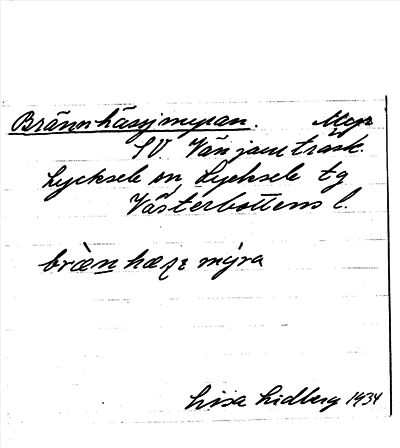 Brännhässjmyran. Myr
SV. Vänjaurträsk.
Lycksele sn Lycksele tg
Västerbottens l.
bræ̀n hæʂɛ mýra
Lisa Lidberg 1934